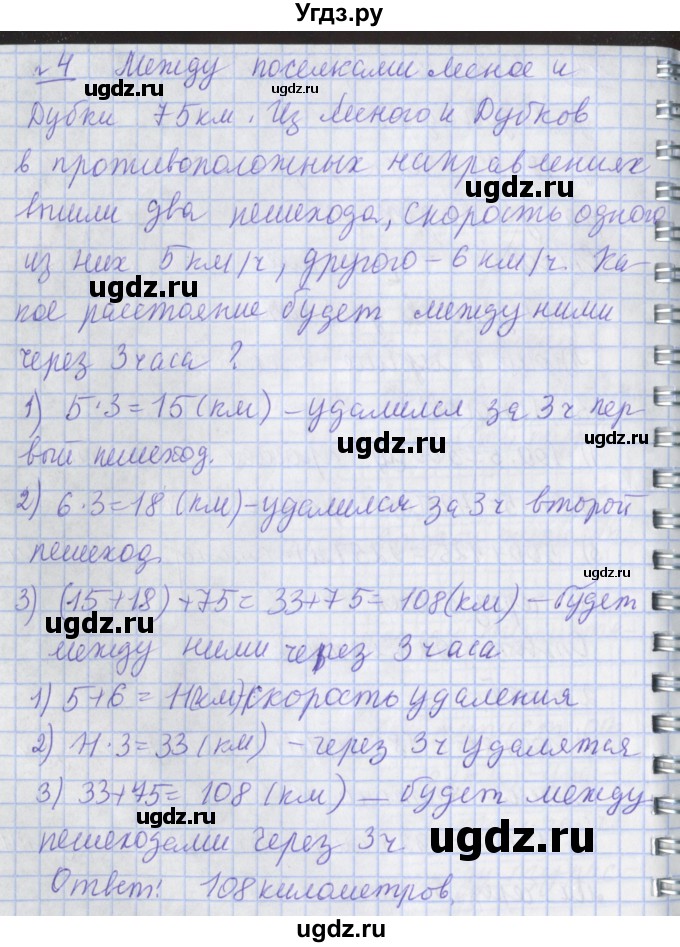 Угдз.ру
№4 Между поселками Лесное и
Дубки 75км. Из Лесного и Дубков
в противоположных направлениях
ugdz.ru
вышли два пешехода, скорость одного
ugdz.ru
из них 5км/ч, другого - 6 км/ч. Ка-
ugdz.ru
кое расстояние будет между ними
через 3 часа?
ugdz.ru
1) 5·3=15(км) - удалился за 3ч пер-
вый пешеход.
ugdz.ru
2) 6·3=18 (км) - удалился за 3ч второй
пешеход.
ugdz.ru
ugdz.ru
3) (15+18)+75=33+75=108(км) - будет
ugdz.ru
между ними через 3 часа
1) 5+6=11(км) - скорость удаления
2) 11·3=33(км) - через 3ч удалятся
ugdz.ru
3) 33+75=108 (км) - будет между
пешеходами через 3ч
ugdz.ru
Ответ: 108 километров.
ugdz.ru